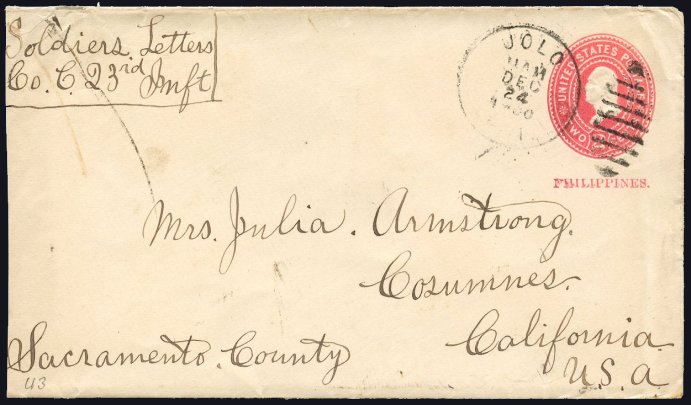 Soldiers Letters
Co. C. 23rd Inft
JOLO
11AM
DEC
24
UNITED STATES
TWO
PHILIPPINES.
Mrs. Julia. Armstrong.
Cosumnes.
California.
Sacramento. County
U.S.a
U3